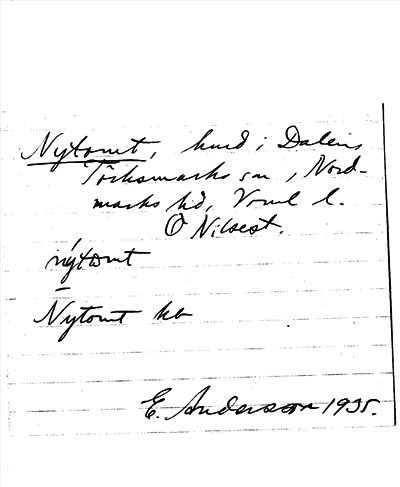 Nytomt, hmd i Dalens
Töcksmarks sn, Nord-
marks hd, Vrml l.
O Nilsest.
nýtomt
Nytomt kb
E. Anderson 1935.